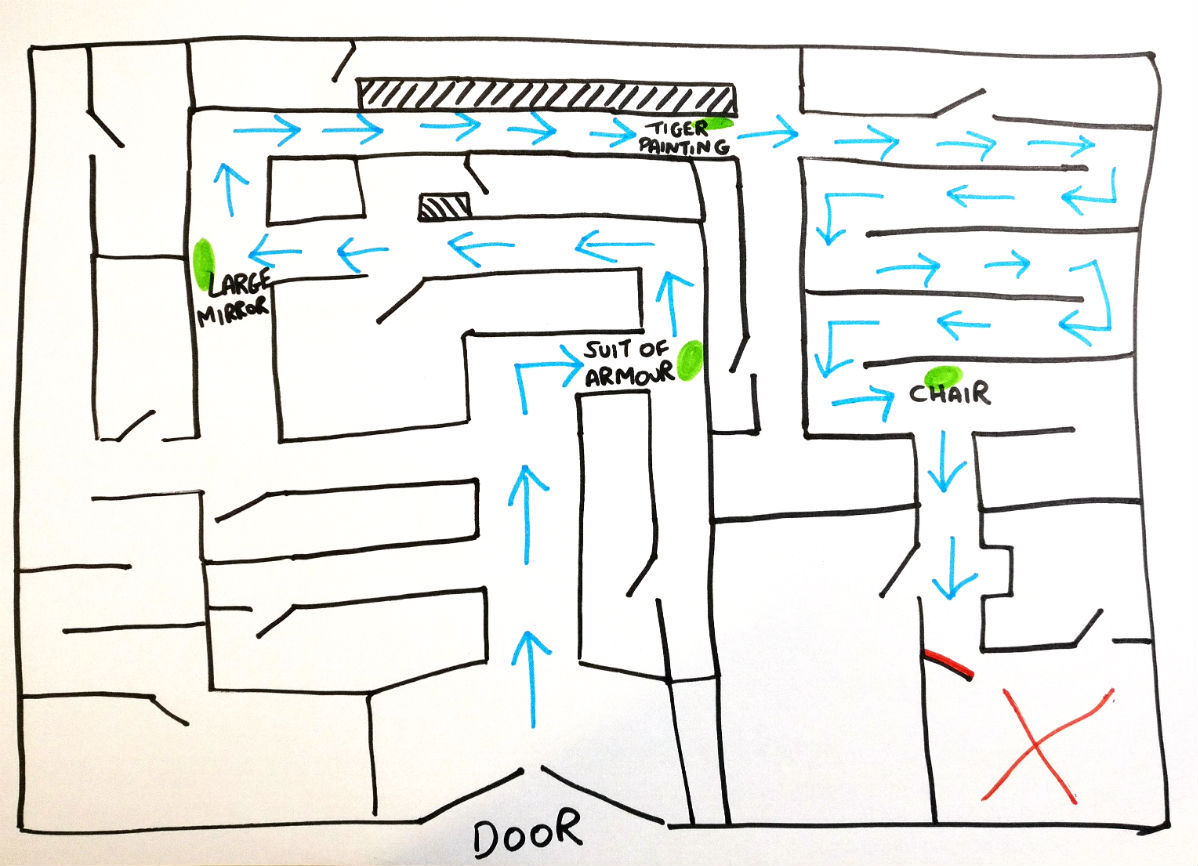 TIGER
PAINTING
LARGE
MIRROR
SUIT OF
ARMOUR
CHAIR
DOOR